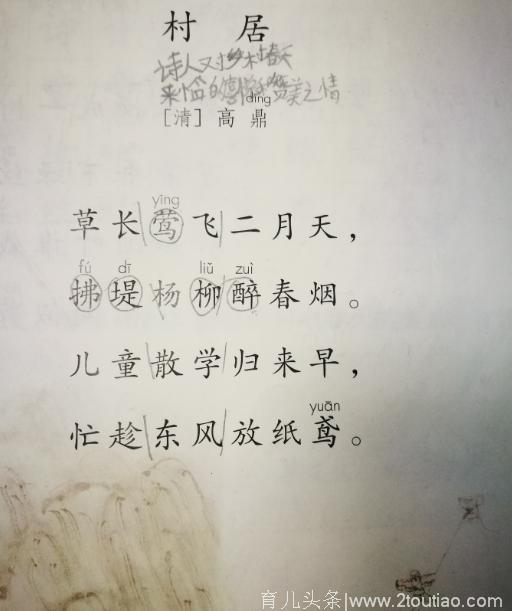 村 居
诗人对乡村春天
来临的喜悦和赞美之情
dǐng
[清] 高 鼎
yīng
草长莺飞二月天，
fú dī liǔ zuì
拂堤杨柳醉春烟。
儿童散学归来早，
yuān
忙趁东风放纸鸢。
育儿头条|www.2toutiao.com